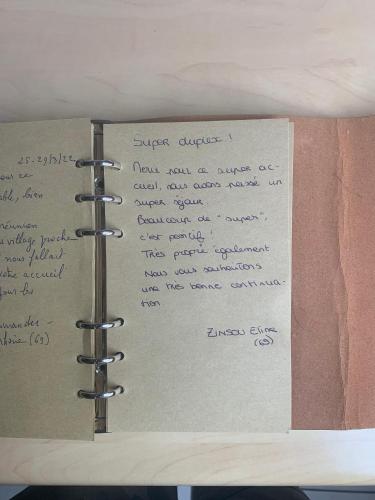 25-29/3/22
able, bien
réunion
village proche
nous fallait
votre accueil
pour les
(69)
Super duplex !
Merci pour ce super ac-
cueil, nous avons passé un
super séjour.
Beaucoup de "super",
c'est positif !
Très propre également
Nous vous souhaitons
une très bonne continua-
tion.
ZINSOU Eline
(69)